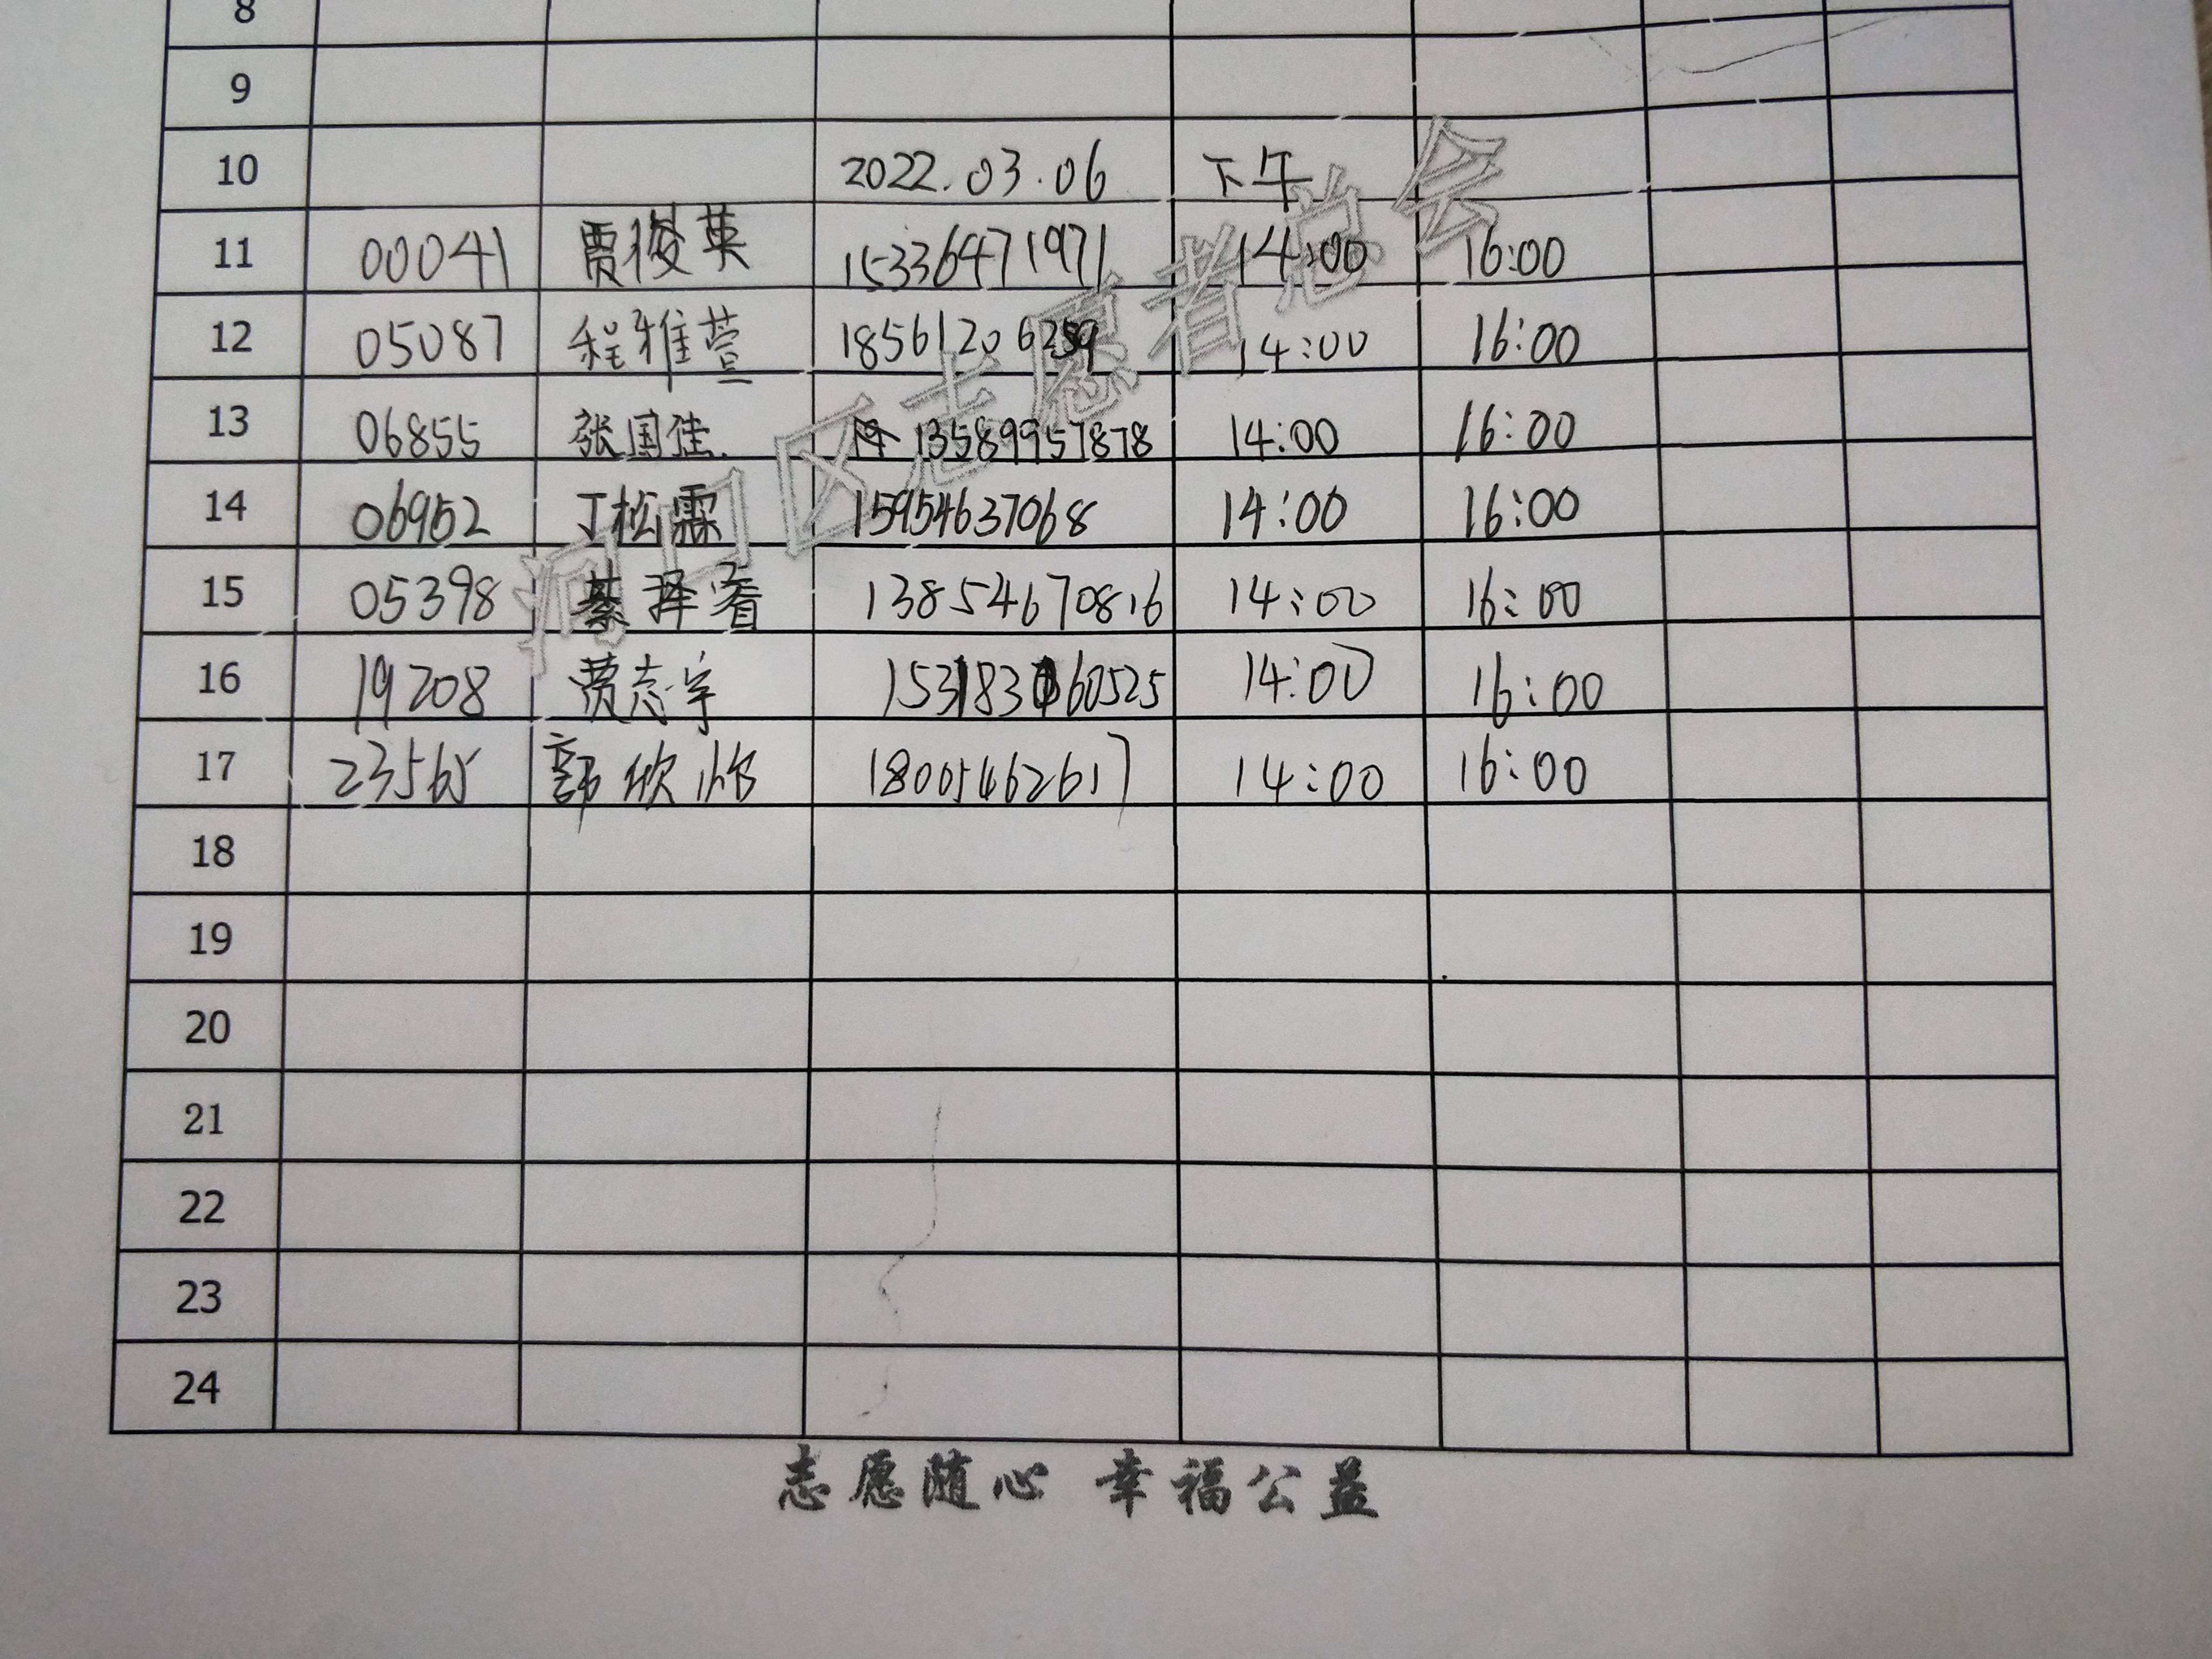 8
9
10 2022.03.06 下午
11 00041 贾俊英 15336471971 14:00 16:00
12 05087 程雅萱 18561206259 14:00 16:00
13 06855 张国佳 13589957878 14:00 16:00
14 06952 丁松霖 15954637068 14:00 16:00
15 05398 綦泽睿 13854670816 14:00 16:00
16 19208 贾志宇 14:00 16:00
17 23565 郭欣 18005462617 14:00 16:00
18
19
20
21
22
23
24
河口区志愿者总会
志愿随心 幸福公益